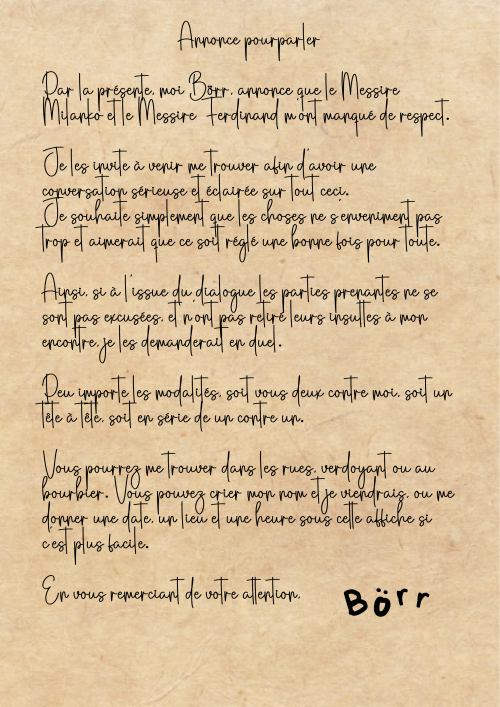 Annonce pourparler
Par la présente, moi Börr, annonce que le Messire
Milanko et le Messire Ferdinand m'ont manqué de respect.
Je les invite à venir me trouver afin d'avoir une
conversation sérieuse et éclairée sur tout ceci.
Je souhaite simplement que les choses ne s'enveniment pas
trop et aimerait que ce soit réglé une bonne fois pour toute.
Ainsi, si à l'issue du dialogue les parties prenantes ne se
sont pas excusées, et n'ont pas retiré leurs insultes à mon
encontre, je les demanderait en duel.
Peu importe les modalités, soit vous deux contre moi, soit un
tête à tête, soit en série de un contre un.
Vous pourrez me trouver dans les rues, verdoyant ou au
bourbier. Vous pouvez crier mon nom et je viendrais, ou me
donner une date, un lieu et une heure sous cette affiche si
c'est plus facile.
En vous remerciant de votre attention.
Börr